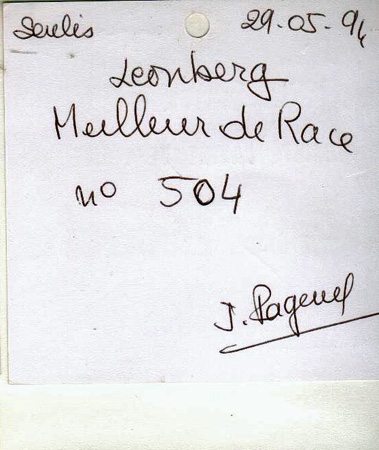 Senlis 29.05.94
Leonberg
Meilleur de Race
no 504
J. Pagenel